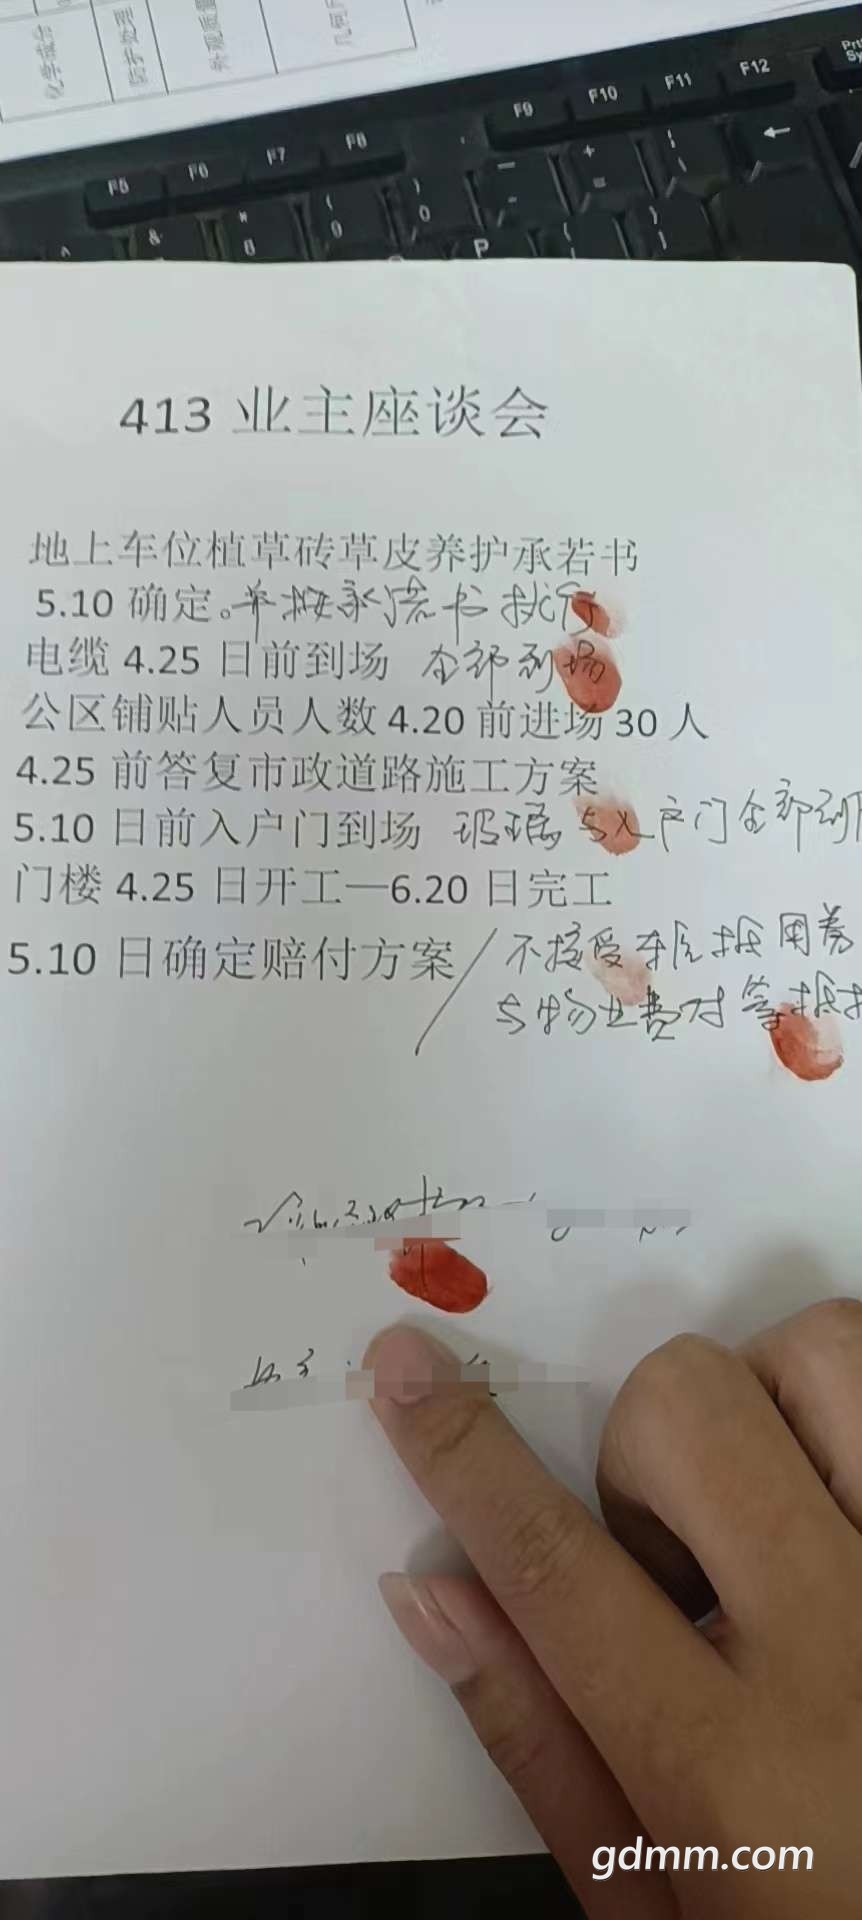 化学成分
防护处理
外观质量
几何尺
F5 F6 F7 F8 F9 F10 F11 F12 Prt Sy
413 业主座谈会
地上车位植草砖草皮养护承若书
5.10 确定。并按承诺书执行
电缆 4.25 日前到场 全部到场
公区铺贴人员人数 4.20 前进场 30 人
4.25 前答复市政道路施工方案
5.10 日前入户门到场 玻璃与入户门全部到
门楼 4.25 日开工—6.20 日完工
5.10 日确定赔付方案/不接受车位抵用券
与物业费对等抵扣
gdmm.com